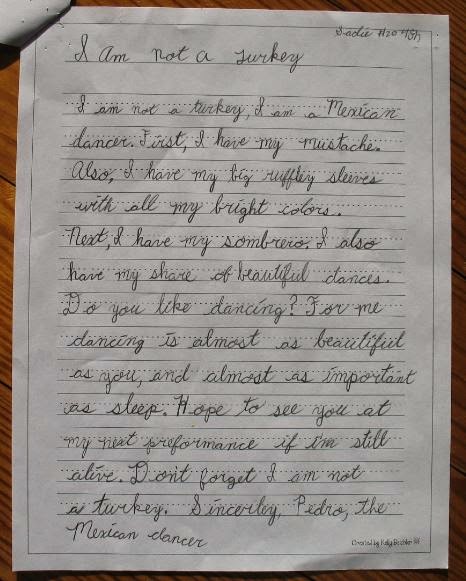 Sadie #20 
I Am not a turkey
I am not a turkey, I am a Mexican
dancer. First, I have my mustache.
Also, I have my big ruffley sleeves
with all my bright colors.
Next, I have my sombrero. I also
have my share of beautiful dances.
Do you like dancing? For me
dancing is almost as beautiful
as you, and almost as important
as sleep. Hope to see you at
my next preformance if i'm still
alive. Dont forget I am not
a turkey. Sincerley, Pedro, the
Mexican dancer
Created by Kelly